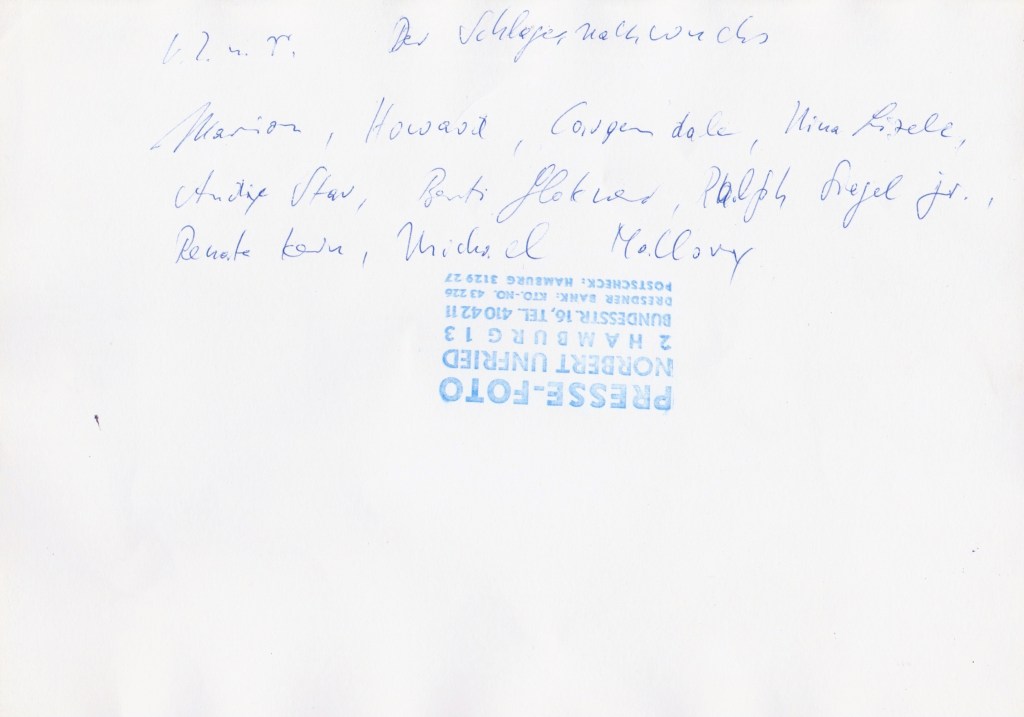 v. l. n. r. Der Schlagernachwuchs
Marion, Howard, Carpendale, Nina Lizell,
Andy Star, Benti Glokner, Ralph Siegel jr.,
Renate Kern, Michael Mallory
PRESSE-FOTO
NORBERT UNFRIED
2 HAMBURG 13
BUNDESSTR. 16, TEL. 410 42 11
DRESDNER BANK: KTO.-NO. 43 226
POSTSCHECK: HAMBURG 3129 27